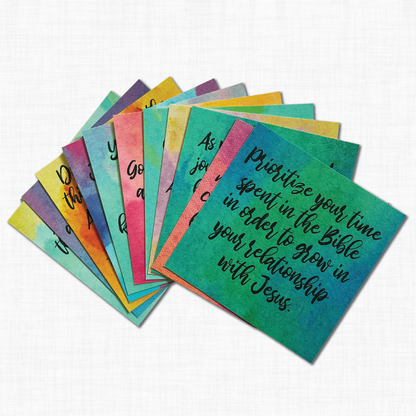 Prioritize your time
spent in the Bible
in order to grow in
your relationship
with Jesus.
As
Go